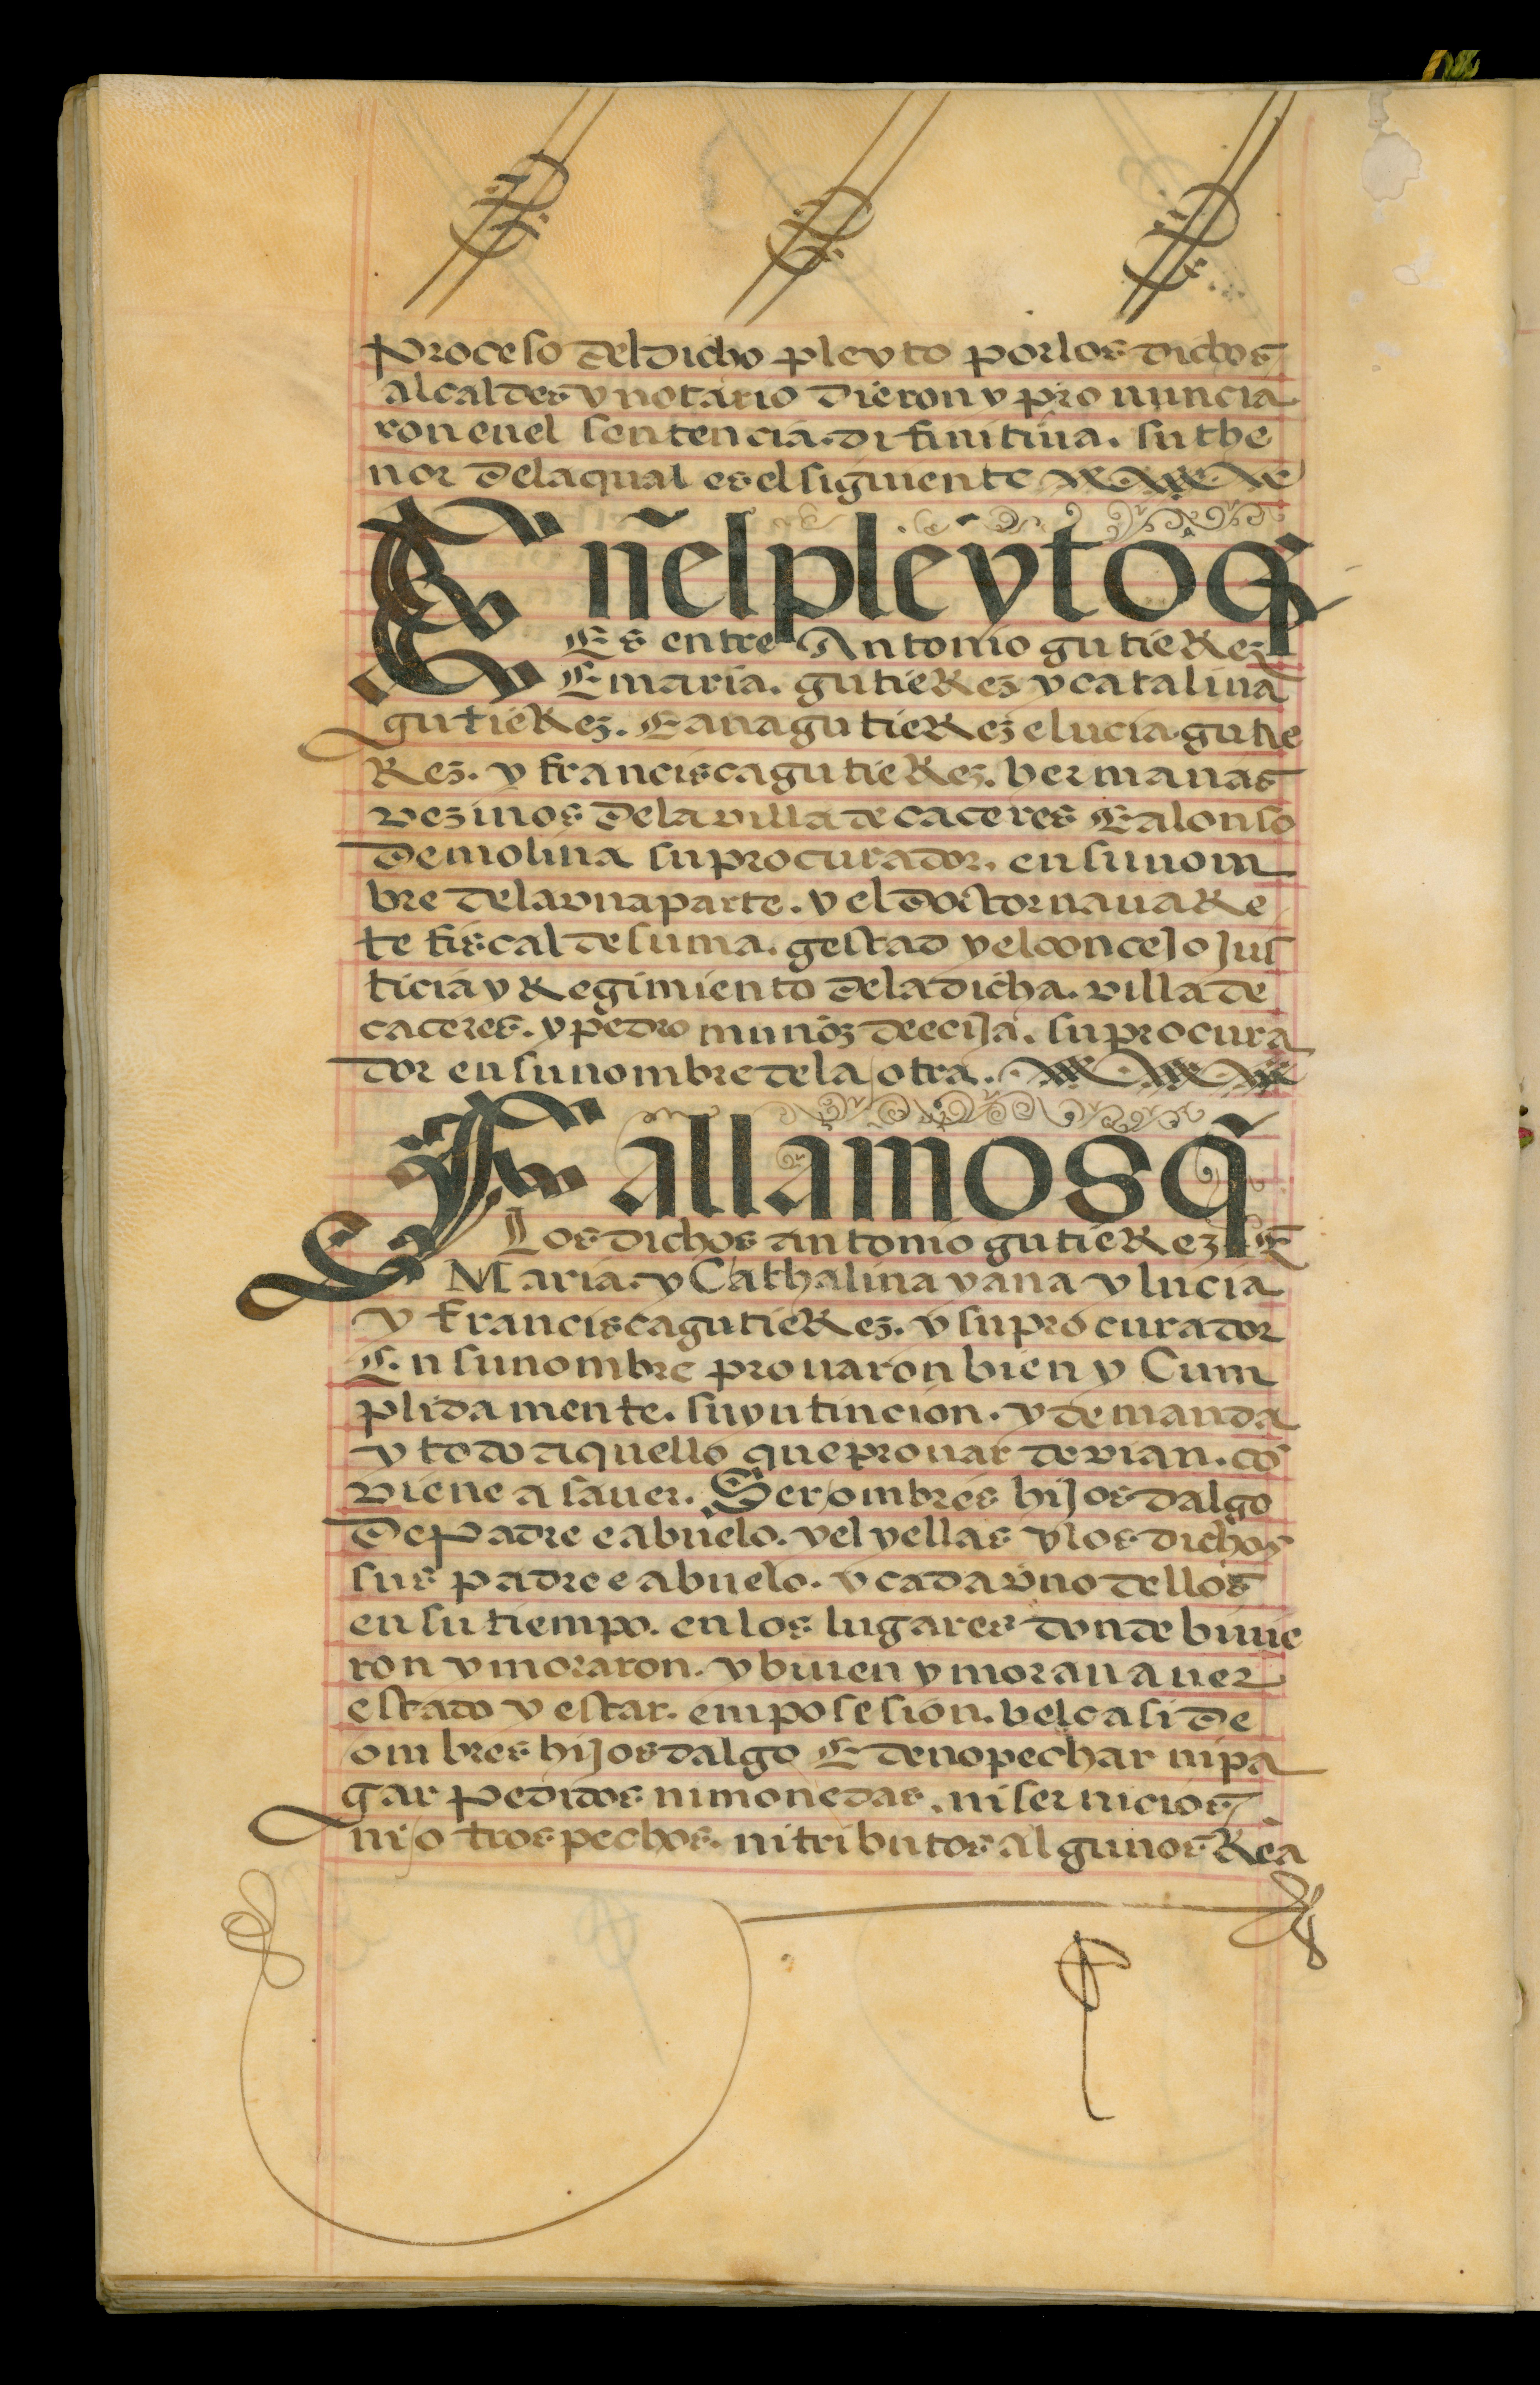 proceso del dicho pleyto por los dichos
alcaldes y notario dieron y pronuncia
ron en el sentencia. difinitiua. su the
nor dela qual es el siguiente
En̄el pleyto q̄
Es entre Antonio gutieRez
E maria. gutieRez y catalina
gutieRez. E ana gutieRez e lucia. gutie
Rez. y francisca gutieRez. hermanas
vezinos dela villa de caceres E alonso
de molina su procurador. en su nom
bre dela vna parte. y el doctor nauaRe
te fiscal de su ma. gestad y el concejo Jus
ticia y Regimiento dela dicha. villa de
caceres. y pedro munoz de ecija. su procura
dor en su nombre de la otra.
Fallamos q̄
Los dichos antonio gutieRez E
Maria. y Cathalina y ana y lucia
y francisca gutieRez. y su procurador
En su nombre prouaron bien y Cum
plidamente. su yntincion. y demanda
y todo aquello que prouar devian. cō
viene a sauer. Ser ombres hijos dalgo
de Padre e abuelo. y el y ellas y los dichos
sus padre e abuelo. y cada vno dellos
en su tiempo. en los lugares donde biuie
ron y moraron. y biuen y moran auer
estado y estar. em posesion. bel casi de
ombres hijos dalgo E de no pechar ni pa
gar pedidos ni monedas. ni seruicios
ni otros pechos. ni tributos algunos Rea